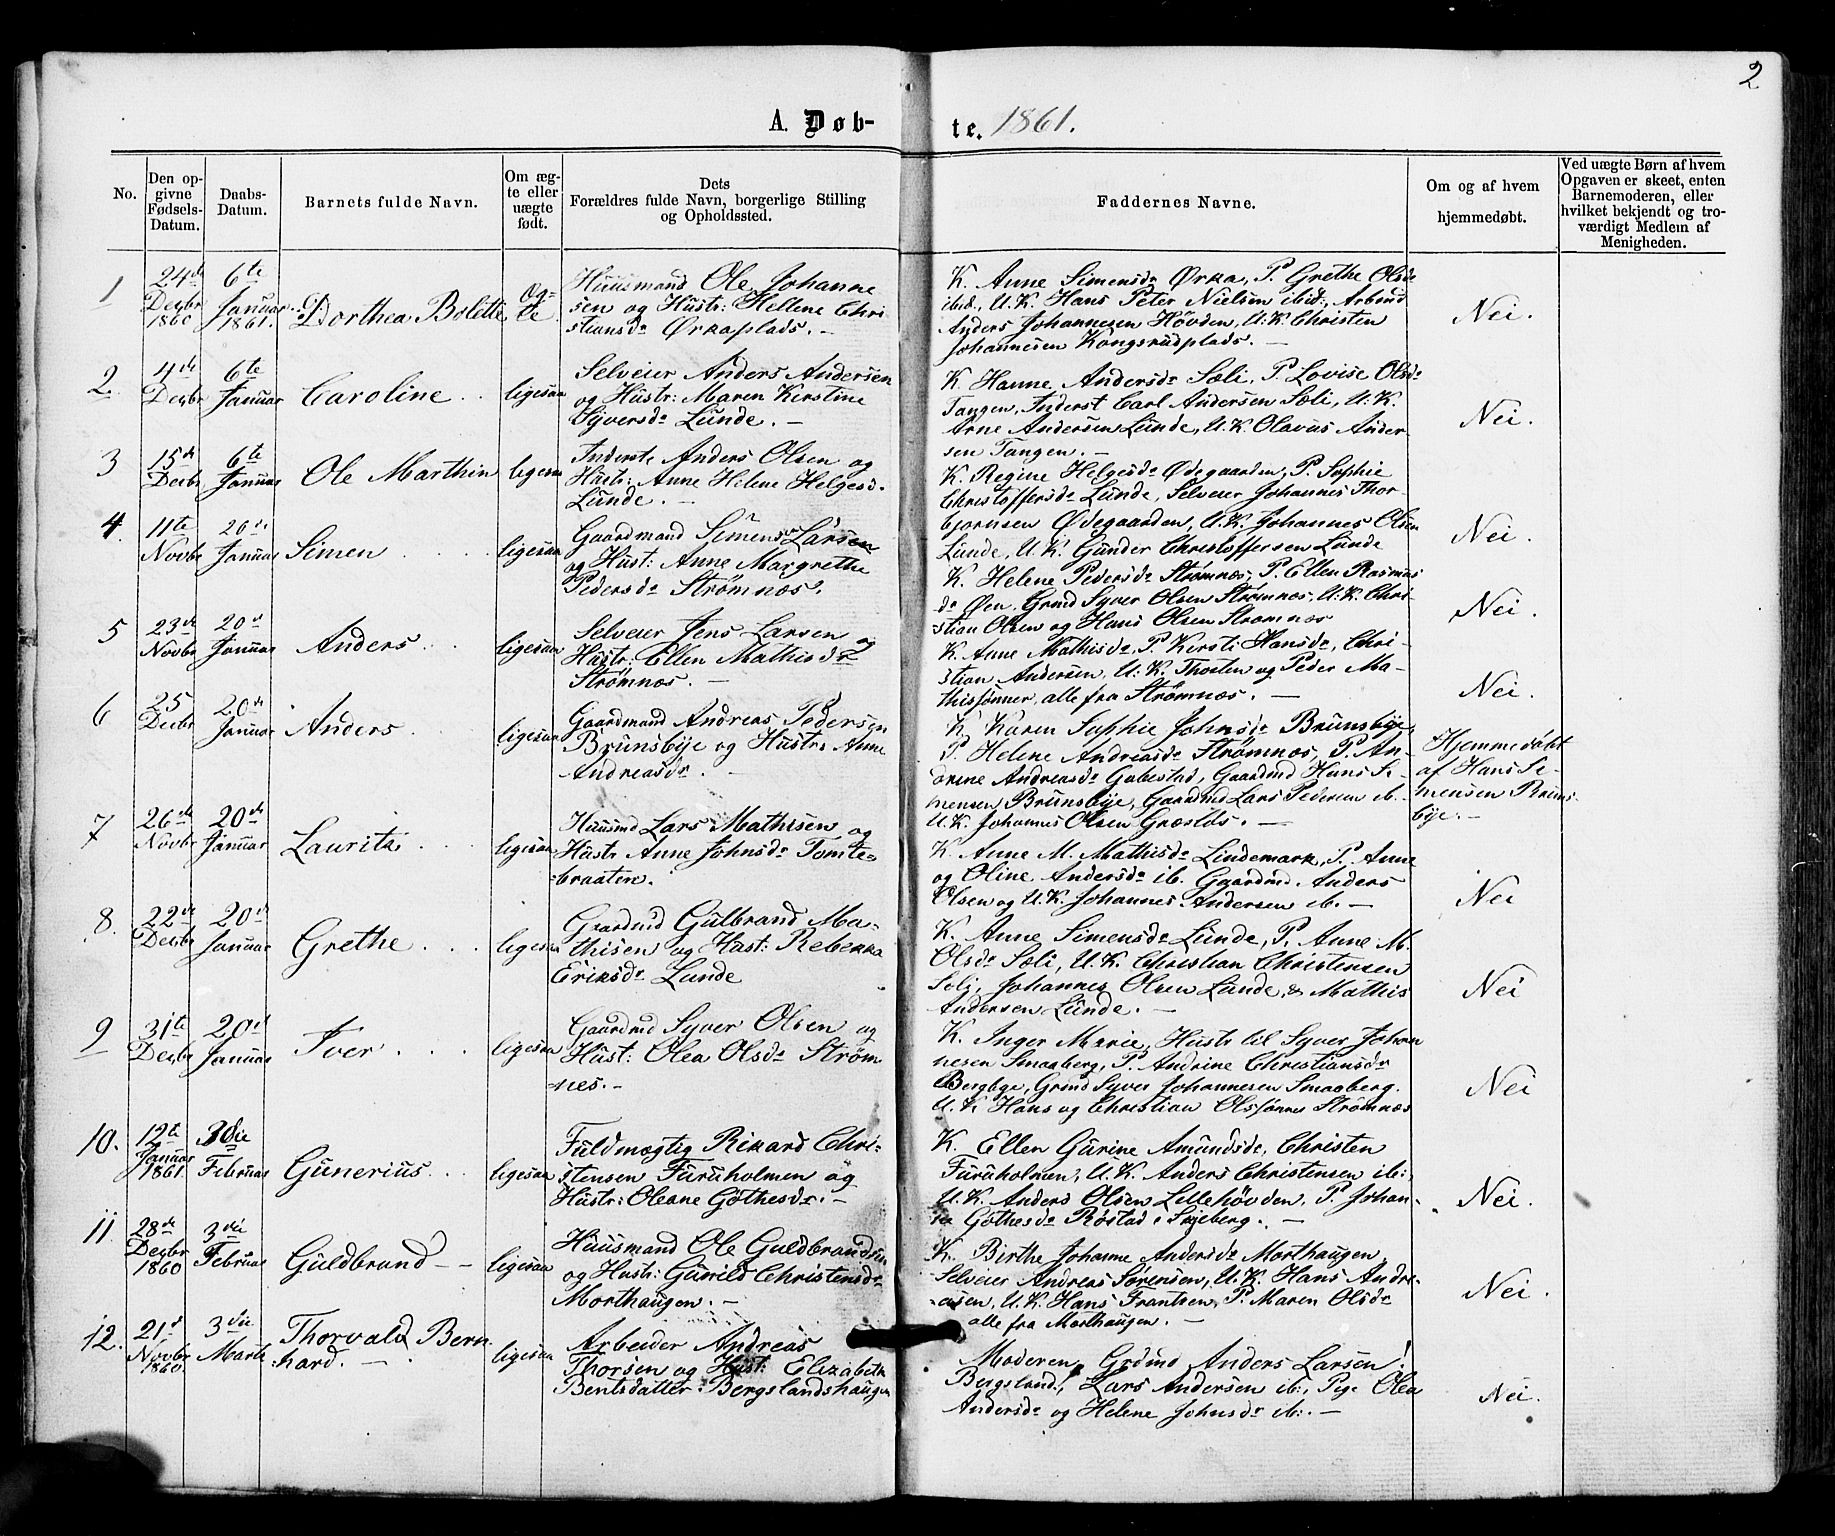 2
A. Døb-
te. 1861.
No.
Den op-
givne
Fødsels-
Datum.
Daabs-
Datum.
Barnets fulde Navn.
Om æg-
te eller
uægte
født.
Dets
Forældres fulde Navn, borgerlige Stilling
og Opholdssted.
Faddernes Navne.
Om og af hvem
hjemmedøbt.
Ved uægte Børn af hvem
Opgaven er skeet, enten
Barnemoderen, eller
hvilket bekjendt og tro-
værdigt Medlem af
Menigheden.
1
24de
Decbr
1860
6te
Januar
1861.
Dorthea Bolette
Huusmand Ole Johanne
sen og Hustr: Hellene Chri
stiansdr Ørkaplads. -
K. Anne Simensdr Ørka, P. Grethe Olsdr
ibid, U.K. Hans Peter Nielsen ibid:, Arbmd
Anders Johannesen Høvden, U.K. Christen
Johannesen Kongsrudplads. -
Nei.
2.
4de
Decbr
6te
Januar
Caroline
ligesaa
Selveier Anders Andersen
og Hustr: Maren Kirstine
Syversdr Lunde. -
K. Hanne Andersdr Sæli, P. Lovise Olsdr
Tangen, Inderst Carl Andersen Sæli, U.K.
Arne Andersen Lunde, U.K. Olavus Ander-
sen Tangen. -
Nei.
3
15de
Decbr
6te
Januar
Ole Marthin
ligesaa
Inderste Anders Olsen og
Hustr: Anne Helene Helgesd.
Lunde. -
K. Regine Helgesdr Ødegaarden, P. Sophie
Christoffersdr Lunde, Selveier Johannes Thor-
bjørnsen Ødegaarden, U.K. Johannes Olsen
Lunde, U.K. Gunder Christoffersen Lunde
Nei.
4.
11te
Novbr
Januar
Simen
ligesaa
Gaardmand Simen Larsen
og Hust: Anne Margrethe
Pedersdr Strømnæs.
K. Helene Pedersdr Strømnæs, P. Ellen Rasmus
dr Øen, Grmd Syver Olsen Strømnæs, U.K. Chri-
stian Olsen og Hans Olsen Strømnæs
Nei.
5
23de
Novbr
20de
Januar
Anders
ligesaa
Selveier Jens Larsen og
Hustr: Ellen Mathisdr
Strømnæs. -
K. Anne Mathisdr, P. Kirsti Hansdr, Chri-
stian Andersen, U.K. Thosten og Peder Ma-
thissønner, alle fra Strømnæs. -
Nei.
6
25
Decbr
20de
Januar
Anders
ligesaa
Gaardmand Andreas Pedersen
Brunsbÿe og Hustr: Anne
Andreasdr. -
K. Karen Sophie Johnsdr Brunsbÿe,
P. Helene Andreasdr Strømnæs, P. An-
drine Andreasdr Gabestad, Gaardmd Hans Si-
mensen Brunsbÿe, Gaardmd Lars Pedersen ib.
U.K. Johannes Olsen Græslös. -
Hjemmedøbt
af Hans Si-
mensen Bruns-
bÿe. -
7
26de
Novbr
20de
Januar
Lauritz
ligesaa
Huusmd Lars Mathisen og
Hustr Anne Johnsdr Tomte-
braaten.
K. Anne M. Mathisdr Lindemark, P. Anne
og Oline Andersdr ib. Gaardmd. Anders
Olsen og U.K. Johannes Andersen ib. -
Nei
8.
22de
Decbr
20de
Januar
Grethe
ligesaa
Gaardmd Gulbrand Ma-
thisen og Hust: Rebekka
Eriksdr Lunde
K. Anne Simensdr Lunde, P. Anne M.
Olsdr Sæli, U.K. Christian Christensen
Sæli, Johannes Olsen Lunde, & Mathis
Andersen Lunde. -
Nei
9
31te
Decbr
20de
Januar
Iver
ligesaa
Gaardmd Syver Olsen og
Hust: Olea Olsdr Strøm
nes. -
K. Inger Marie, Hustr til Syver Johan
nesen Smaaberg, P. Andrine Christiansdr
Bergbye, Grmd Syver Johannesen Smaaberg.
U.K. Hans og Christian Olssønner Strømnæs
Nei
10.
12te
Januar
1861.
3die
Februar
Gunerius
ligesaa
Fuldmægtig Rikard Chri-
stensen Furuholmen og
Hustr: Oleane Göthesdr. -
K. Ellen Gurine Amundsdr, Christen
Furuholmen, U.K. Anders Christensen ib:,
U.K. Anders Olsen Lillehövden, P. Johan-
ne Göthesdr Røstad i Sigeberg. -
Nei.
11.
28de
Decbr
1860
3die
Februar
Guldbrand
ligesaa
Huusmand Ole Guldbrandsen
og Hustr: Gunild Christensdr
Morthaugen. -
K. Birthe Johanne Andersdr Morthaugen,
Selveier Andreas Sørensen, U.K. Hans Andre-
asen, U.K. Hans Frantsen, P. Maren Olsdr
alle fra Morthaugen. -
Nei.
12.
21de
Novbr
1860
3die
Marts
Thorvald Bern
hard. -
ligesaa
Arbeider Andreas
Thorsen og Hust: Elizabeth
Bentsdatter Bergslandshaugen
Moderen, Grdmd Anders Larsen
Bergsland, Lars Andersen ib:, Pige Olea
Andersdr og Helene Johnsdr ib: -
Nei.